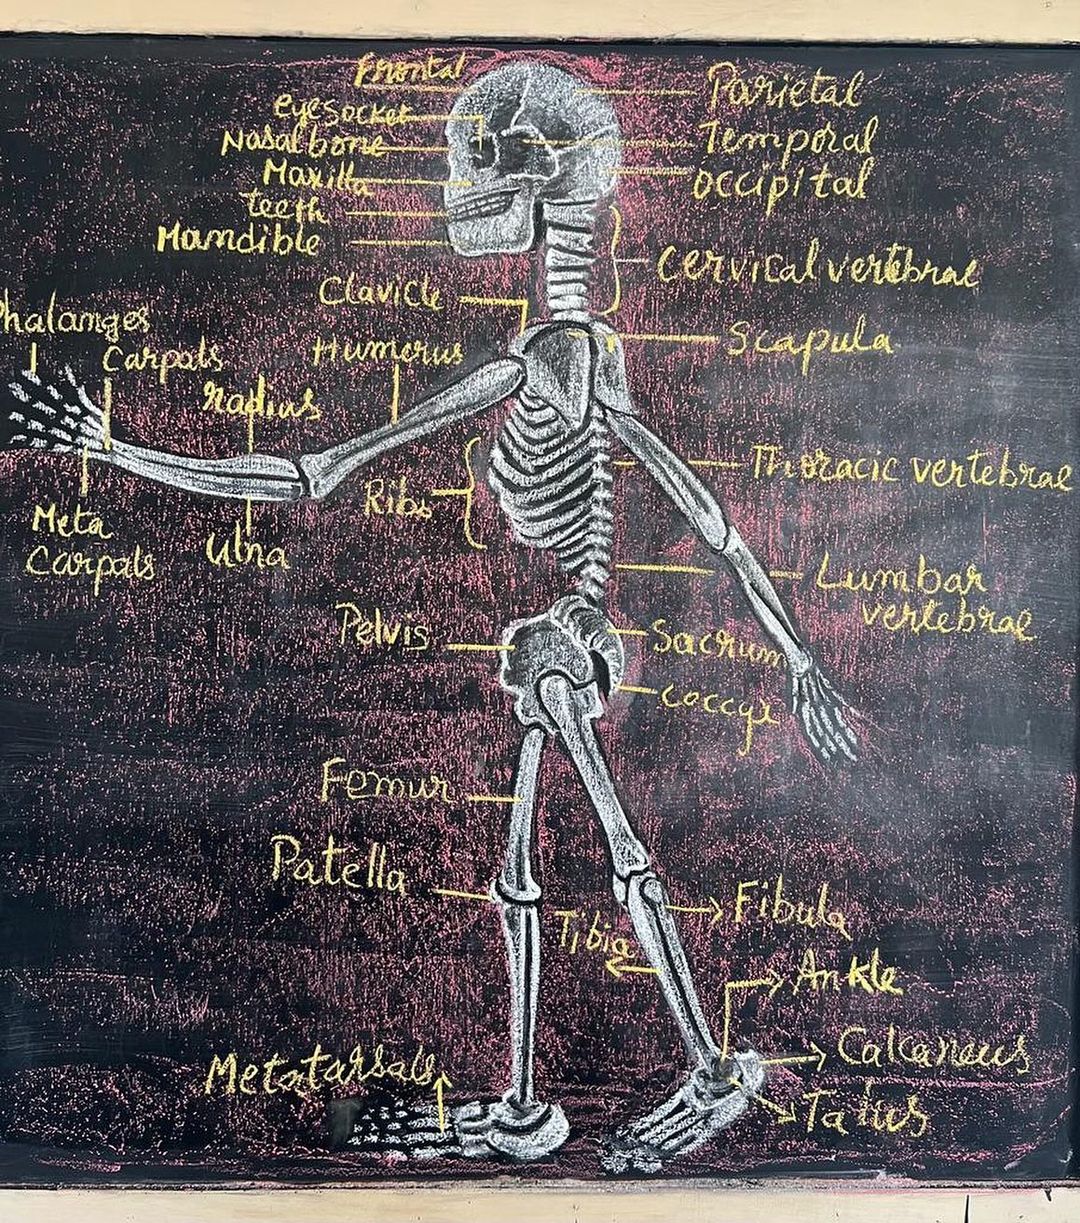 Frontal
Parietal
eyesocket
Nasal bone
Temporal
Maxilla
occipital
teeth
Mandible
Cervical vertebrae
Clavicle
Phalanges
Scapula
Carpals
Humerus
radius
Thoracic vertebrae
Ribs
Meta
Carpals
Ulna
Lumbar
vertebrae
Pelvis
Sacrum
Coccyx
Femur
Patella
Fibula
Tibia
Ankle
Calcaneus
Metatarsals
Talus